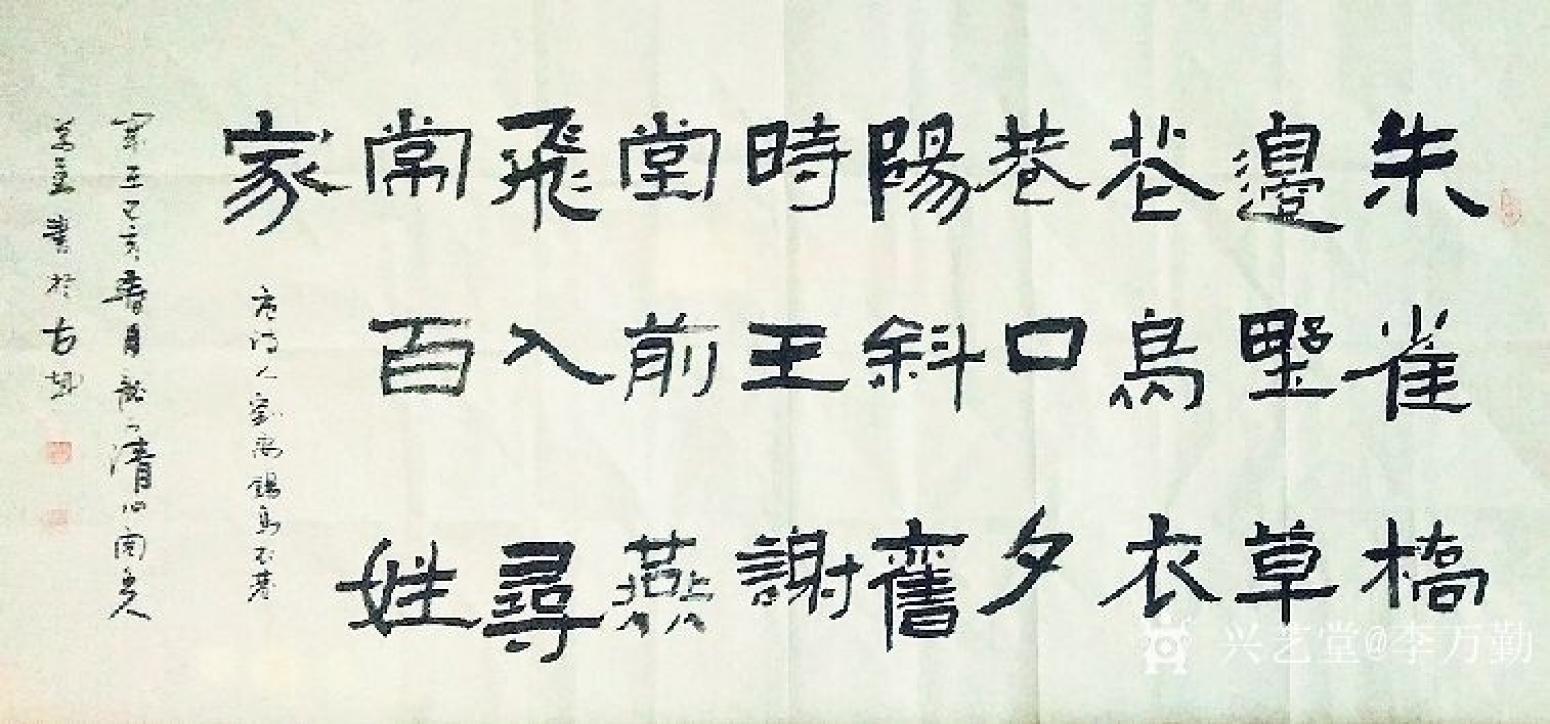 朱雀橋
邊野草
花烏衣
巷口夕
陽斜舊
時王謝
堂前燕
飛入尋
常百姓
家
唐詩人劉禹錫烏衣巷
己亥春月 清心
書於古
兴艺堂@李万勤